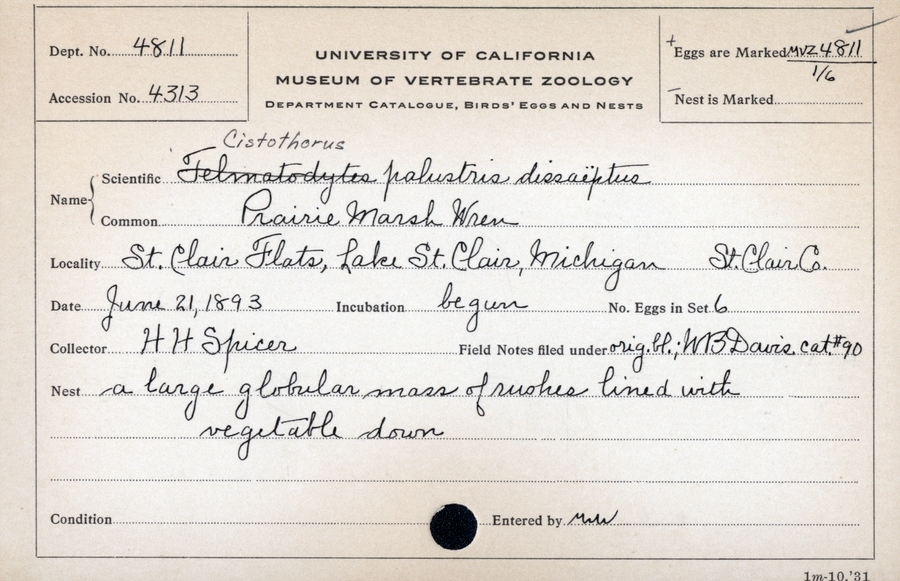 Dept. No. 4811
Accession No. 4313
UNIVERSITY OF CALIFORNIA
MUSEUM OF VERTEBRATE ZOOLOGY
DEPARTMENT CATALOGUE, BIRDS' EGGS AND NESTS
+Eggs are Marked MVZ4811
1/6
-Nest is Marked
Cistothorus
Name Scientific Telmatodytes palustris dissaëptus
Common Prairie Marsh Wren
Locality St. Clair Flats, Lake St. Clair, Michigan St. Clair Co.
Date June 21, 1893 Incubation begun No. Eggs in Set 6
Collector H H Spicer Field Notes filed under orig. bl.; WB Davis cat. #90
Nest a large globular mass of rushes lined with
vegetable down
Condition Entered by
1m-10,'31